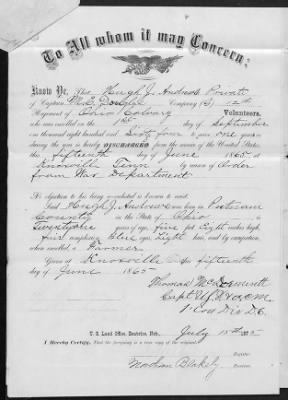 To All whom it may Concern;
Know Ye, That Hugh J. Andrews Private
of Captain Company (B) 12th
Regiment of Ohio Cavalry Volunteers,
who was enrolled on the day of September
one thousand eight hundred and Sixty four to serve one years or
during the war is hereby DISCHARGED from the service of the United States
this fifteenth day of June 1865, at
Knoxville Tenn by reason of Order
from War Department
No objection to his being re-enlisted is known to exist.
Said Hugh J. Andrews was born in Putnam
County in the State of Ohio, is
Twenty one years of age, five feet Eight inches high,
fair complexion, Blue eyes, Light hair, and by occupation,
when enrolled, a Farmer
Given at Knoxville this fifteenth
day of June 1865
Thomas McDermott
Capt
1" Cav Div
U. S. Land Office, Beatrice, Neb., July
I Hereby Certify, That the foregoing is a true copy of the original.
Register.
Nathan Blakely
Receiver.